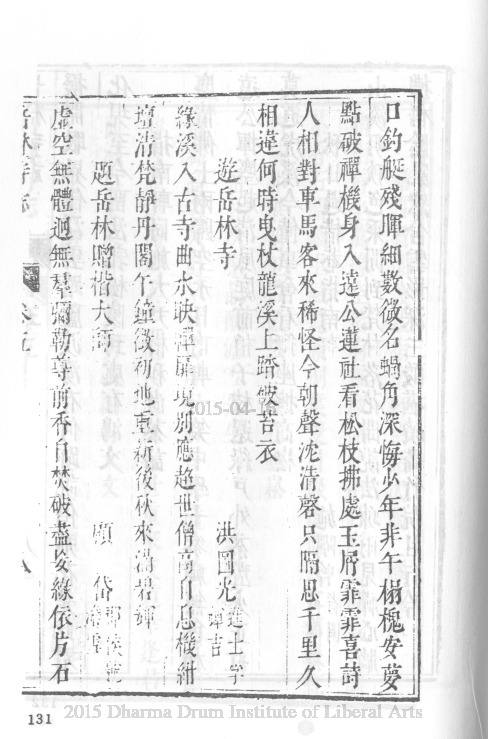 口釣艇殘暉細數微名蝸角深悔少年非午榻槐安夢
點破禪機身入遠公蓮社看松枝拂處玉屑霏霏喜詩
人相對車馬客來稀怪今朝聲沈清磬只隔思千里久
相違何時曳杖龍溪上踏破苔衣
遊岳林寺
洪圖光 進士字
緣溪入古寺曲水映禪扉境別應超世僧高自息機紺
壇清梵靜丹閣午鐘微初地重新後秋來滿碧輝
題岳林贈楷大師
顧岱
虛空無體迥無羣彌勒尊前香自焚破盡妄緣依片石
岳林寺志
卷五
八
131
2015-04-1
2015 Dharma Drum Institute of Liberal Arts